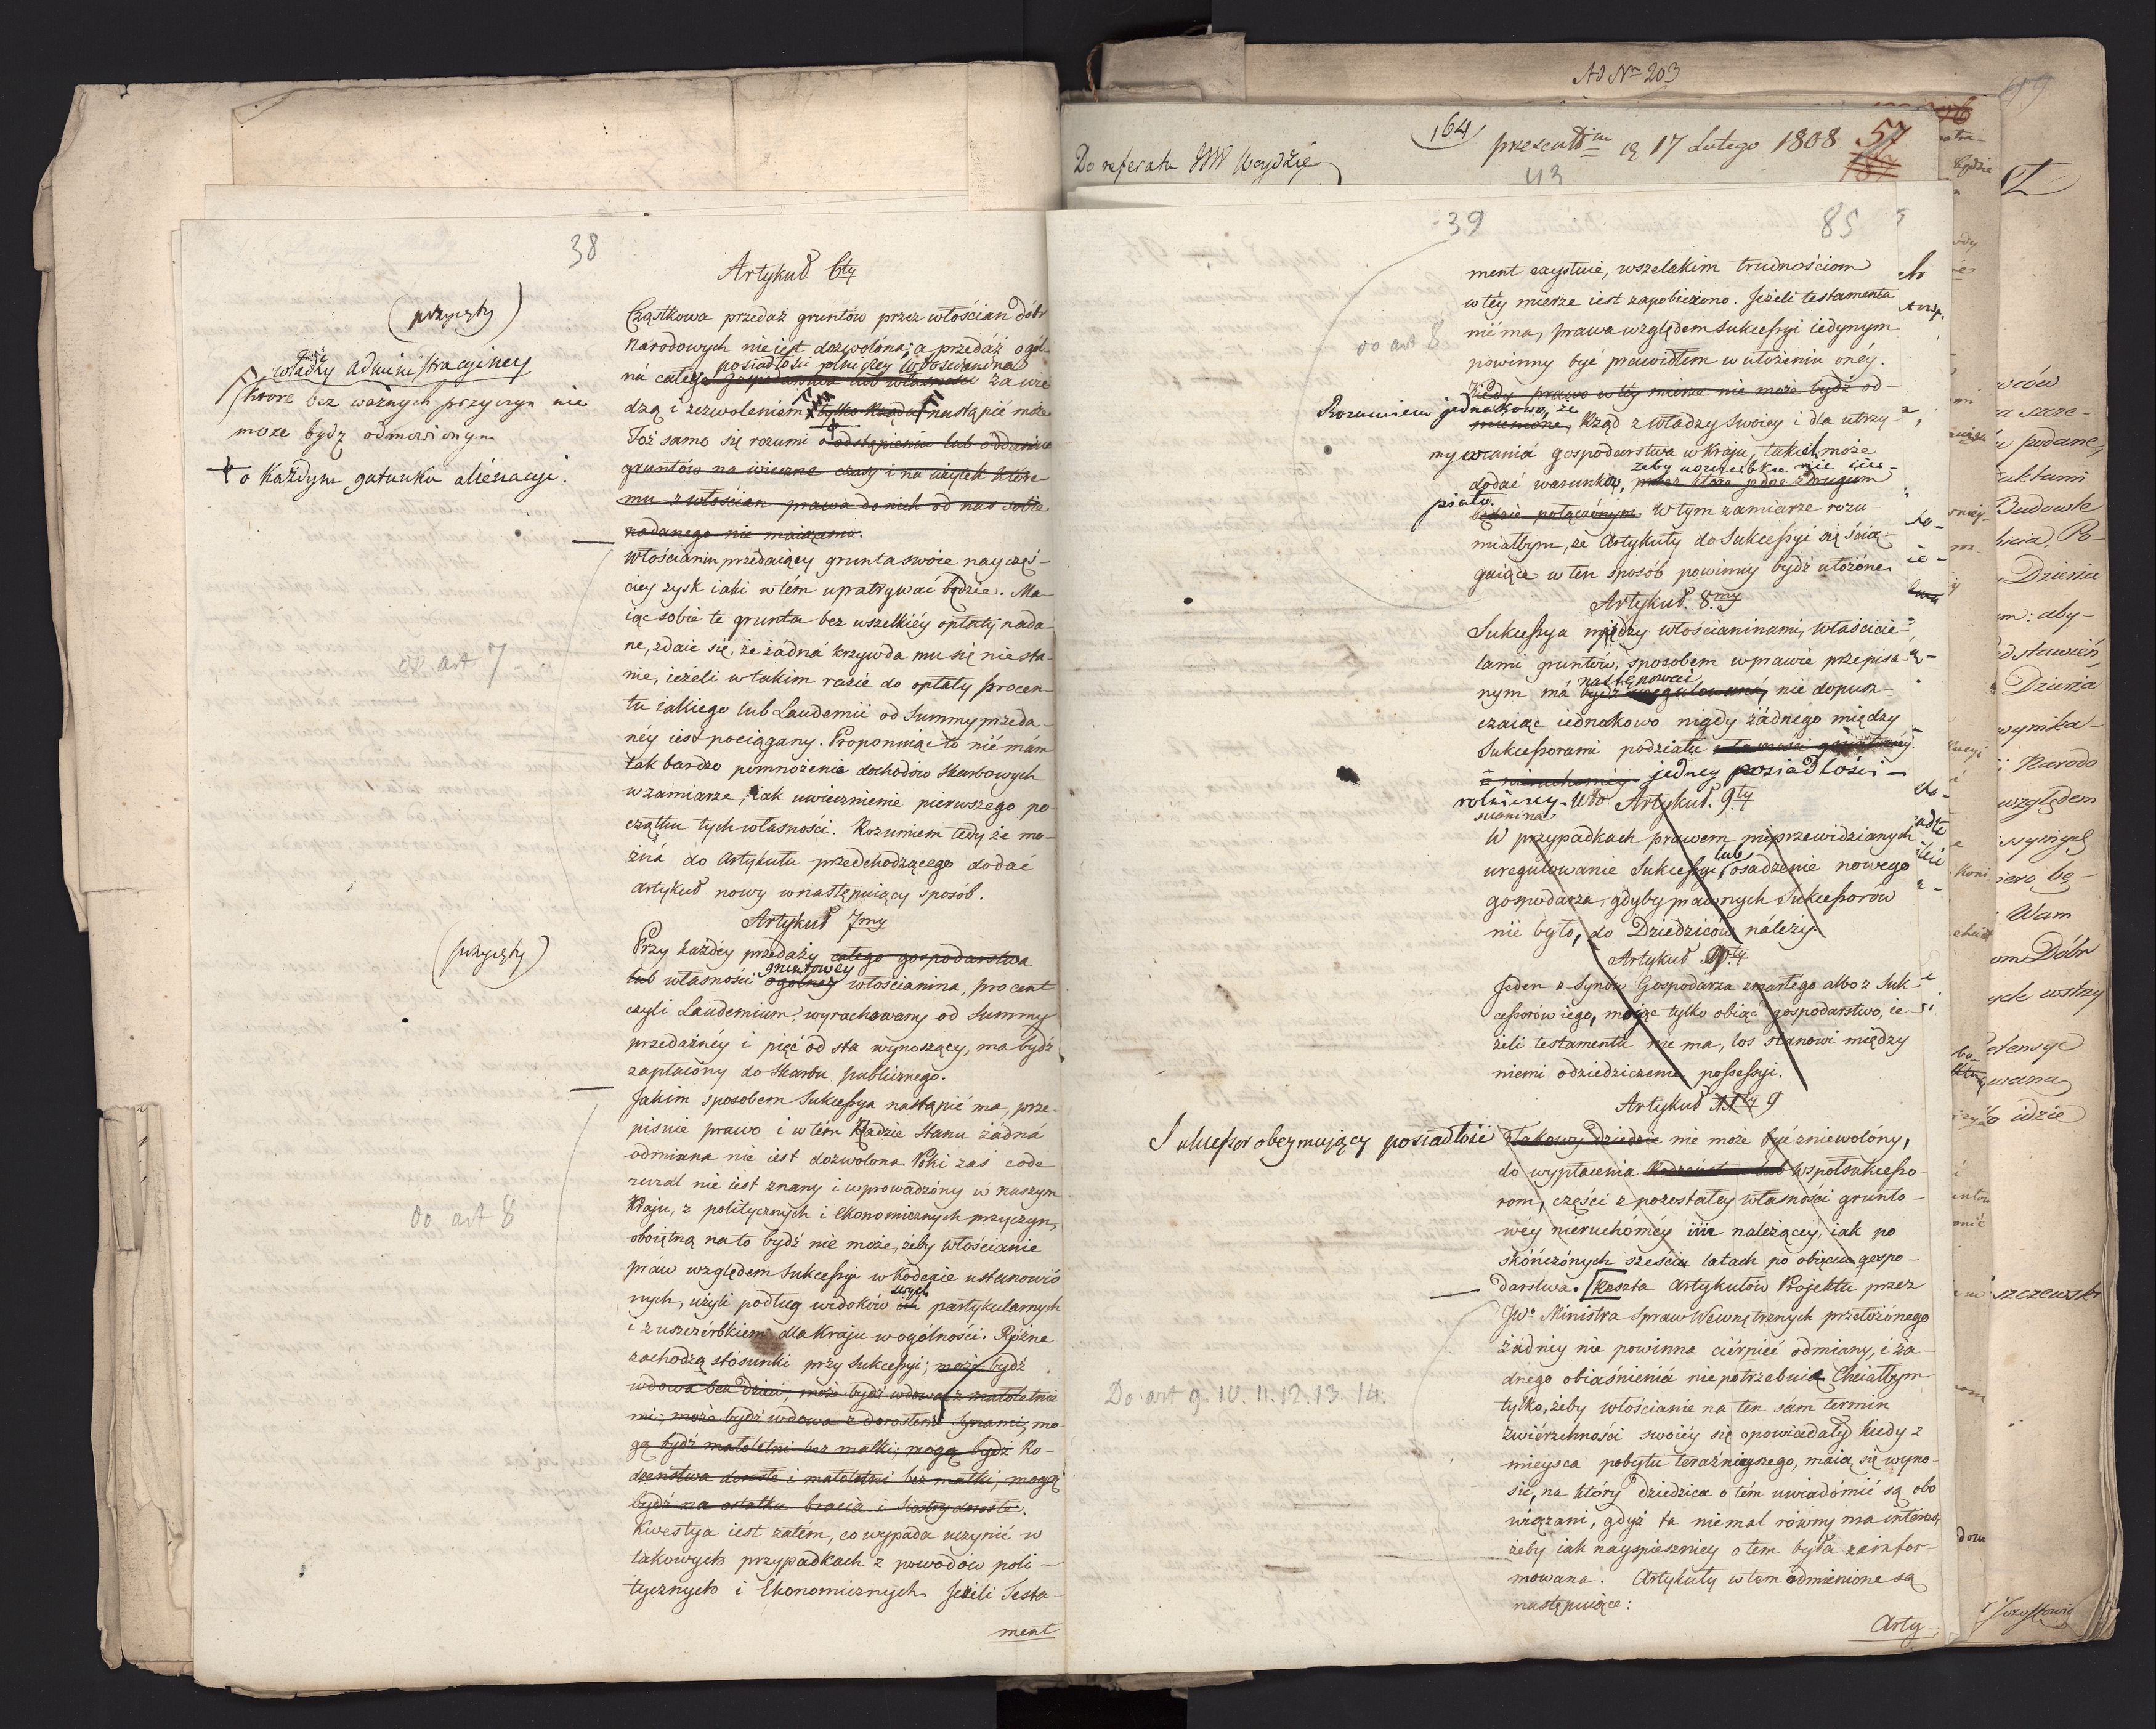 38
Artykuł 6ty
(przyięty)
Cząstkowa przedaż gruntów przez włościan dóbr
Narodowych nie iest dozwolóna; a przedaż ogól-
posiadłości rolniczey włościanina
ná całego gospodarstwa lub własności za wie
dzą i zezwoleniem tylko Rządu nastąpić może
władzy administracyiney
które bez ważnych przyczyn nie
może bydź odmówionym
Toż samo się rozumi o odstąpieniu lub oddaniu
gruntów na wieczne czasy i na użytek które-
mu z włościan prawa do nich od nas sobie
nadanego nie maiącemu.
o każdym gatunku alienacyi.
Włościanin przedaiący grunta swoie nayczęś-
ciey zysk iaki w tém upatrywać będzie. Ma-
iąc sobie te grunta bez wszelkiéy opłaty nada-
ne, zdaie się, że żadná krzywda mu się nie sta-
nie, ieżeli w takim razie do opłaty procen-
tu iakiego lub Laudemii od Summy przeda-
néy iest pociągany. Proponuiąc to nié mám
tak bardzo pomnożenia dochodów skarbowych
w zamiarze, iak uwiecznienie pierwszego po-
czątku tych własności. Rozumiem tedy że mo-
żná do Artykułu przedchodzącego dodać
Artykuł nowy w następuiący sposób.
art 7
Artykuł 7my
(przyięty)
Przy każdéy przedaży całego gospodarstwa
gruntowey
lub własności ogólney włościanina, procent
czyli Laudemium, wyrachowany od Summy
przedażnéy i pięć od sta wynoszący, ma bydź
zapłacóny do Skarbu publicznego.
Jakim sposobem Sukcessya nastąpić ma, prze-
pisuie prawo i w tém Radzie Stanu żádná
odmiana nie iest dozwolona. Póki zaś code
rural nie iest znany i wprowadzóny w naszym
Kraju, z politycznych i Ekonomicznych przyczyn,
oboiętną na to bydź nie może, żeby włościanie
praw względem Sukcessyi w Kodexie ustanowio
nych, użyli podług widoków swych partykularnych
i z uszczérbkiem dla Kraju w ogólności. Różne
zachodzą stosunki przy Sukcessyi; może bydź
wdowa bez dzieci; może bydź wdowa z małoletnie
mi; może bydź wdowa z dorosłemi Synami; mo-
gą bydź małoletni bez matki; mogą bydź Ro-
dzeństwa dorosłe i małoletni bez matki, mogą
bydź na ostatku bracia i Siostry dorosłe.
Kwestya iest zatém, co wypada uczynić w
takowych przypadkach z powodów poli-
tycznych i Ekonomicznych. Jeżeli Testa-
ment
Do art 8
Ad Nr 203
164
Do referatu JW Woydzie
17 Lutego 1808
57
43
39
85
ment exystuie, wszelakim trudnościom
w téy mierze iest zapobieżono. Jeżeli testamentu
nié ma, prawa względem Sukcessyi iedynym
powinny być prawidłem w ułożeniu onéy.
do art 8
Kiedy prawo w téy mierze nie może bydź od-
Rozumiem jednakowo, że
mienione, Rząd z władzy swoiey i dla utrzy-
mywania gospodarstwa w kraju, takie może
żeby uszczerbku nie cier-
dodać warunków, przez które jedne z drugiem
piało.
będzie połączónym. W tym zamiarze rozu-
miałbym, że Artykuły do Sukcessyi się ścią-
gaiące w ten sposób powinny bydź ułożóne
Artykuł 8my
Sukcessya między włościaninami, właścicie-
lami gruntów, sposobem w prawie przepisa-
następować
nym má bydź uregulowaná, nie dopusz-
czaiąc iednakowo nigdy żádnego między
Sukcessorami podziału
jedney posiadłości
rolniczey Wło-
scianina
Artykuł 9ty
W przypadkach prawem nieprzewidzianych
lub
uregulowanie Sukcessyi osadzenie nowego
gospodarza, gdyby prawnych Sukcessorów
nié było, do Dziedziców náleży.
Artykuł
Jeden z Synów Gospodarza zmarłego albo z Suk-
cessorów iego, mogąc tylko obiąć gospodarstwo, ie
żeli testamentu nie ma, los stanowi między
niemi odziedziczenie possessyi.
Artykuł 9
Sukcessor obeymujący posiadłość
Takowy dziedzic nie może być zniewolóny,
do wypłacenia Rodzeństwu lub współsukcesso-
rom, części z pozostałey własności grunto-
wéy nieruchóméy im należącey, iak po
skończónych sześciu latach po obięciu gospo-
darstwa. Reszta Artykułów Projektu przez
JW. Ministra Spraw Wewnętrznych przełożónego
żádnéy nie powinna ciérpieć odmiany, i ża-
dnego obiaśnieniá nie potrzebuie. Chciałbym
tylko, żeby włościanie na ten sám termin
zwiérzchności swoiéy się opowiadały kiedy z
mieysca pobytu teraźnieyszego, maią się wyno-
sić, na który Dziedzica o tém uwiadómić są obo
wiązani, gdyż ta niemal równy ma interes,
żeby iak nayspieszniey o tem była zainfor-
mowana. Artykuły w tem odmienione są
następuiące:
Arty-
Do art 9. 10. 11. 12. 13. 14.